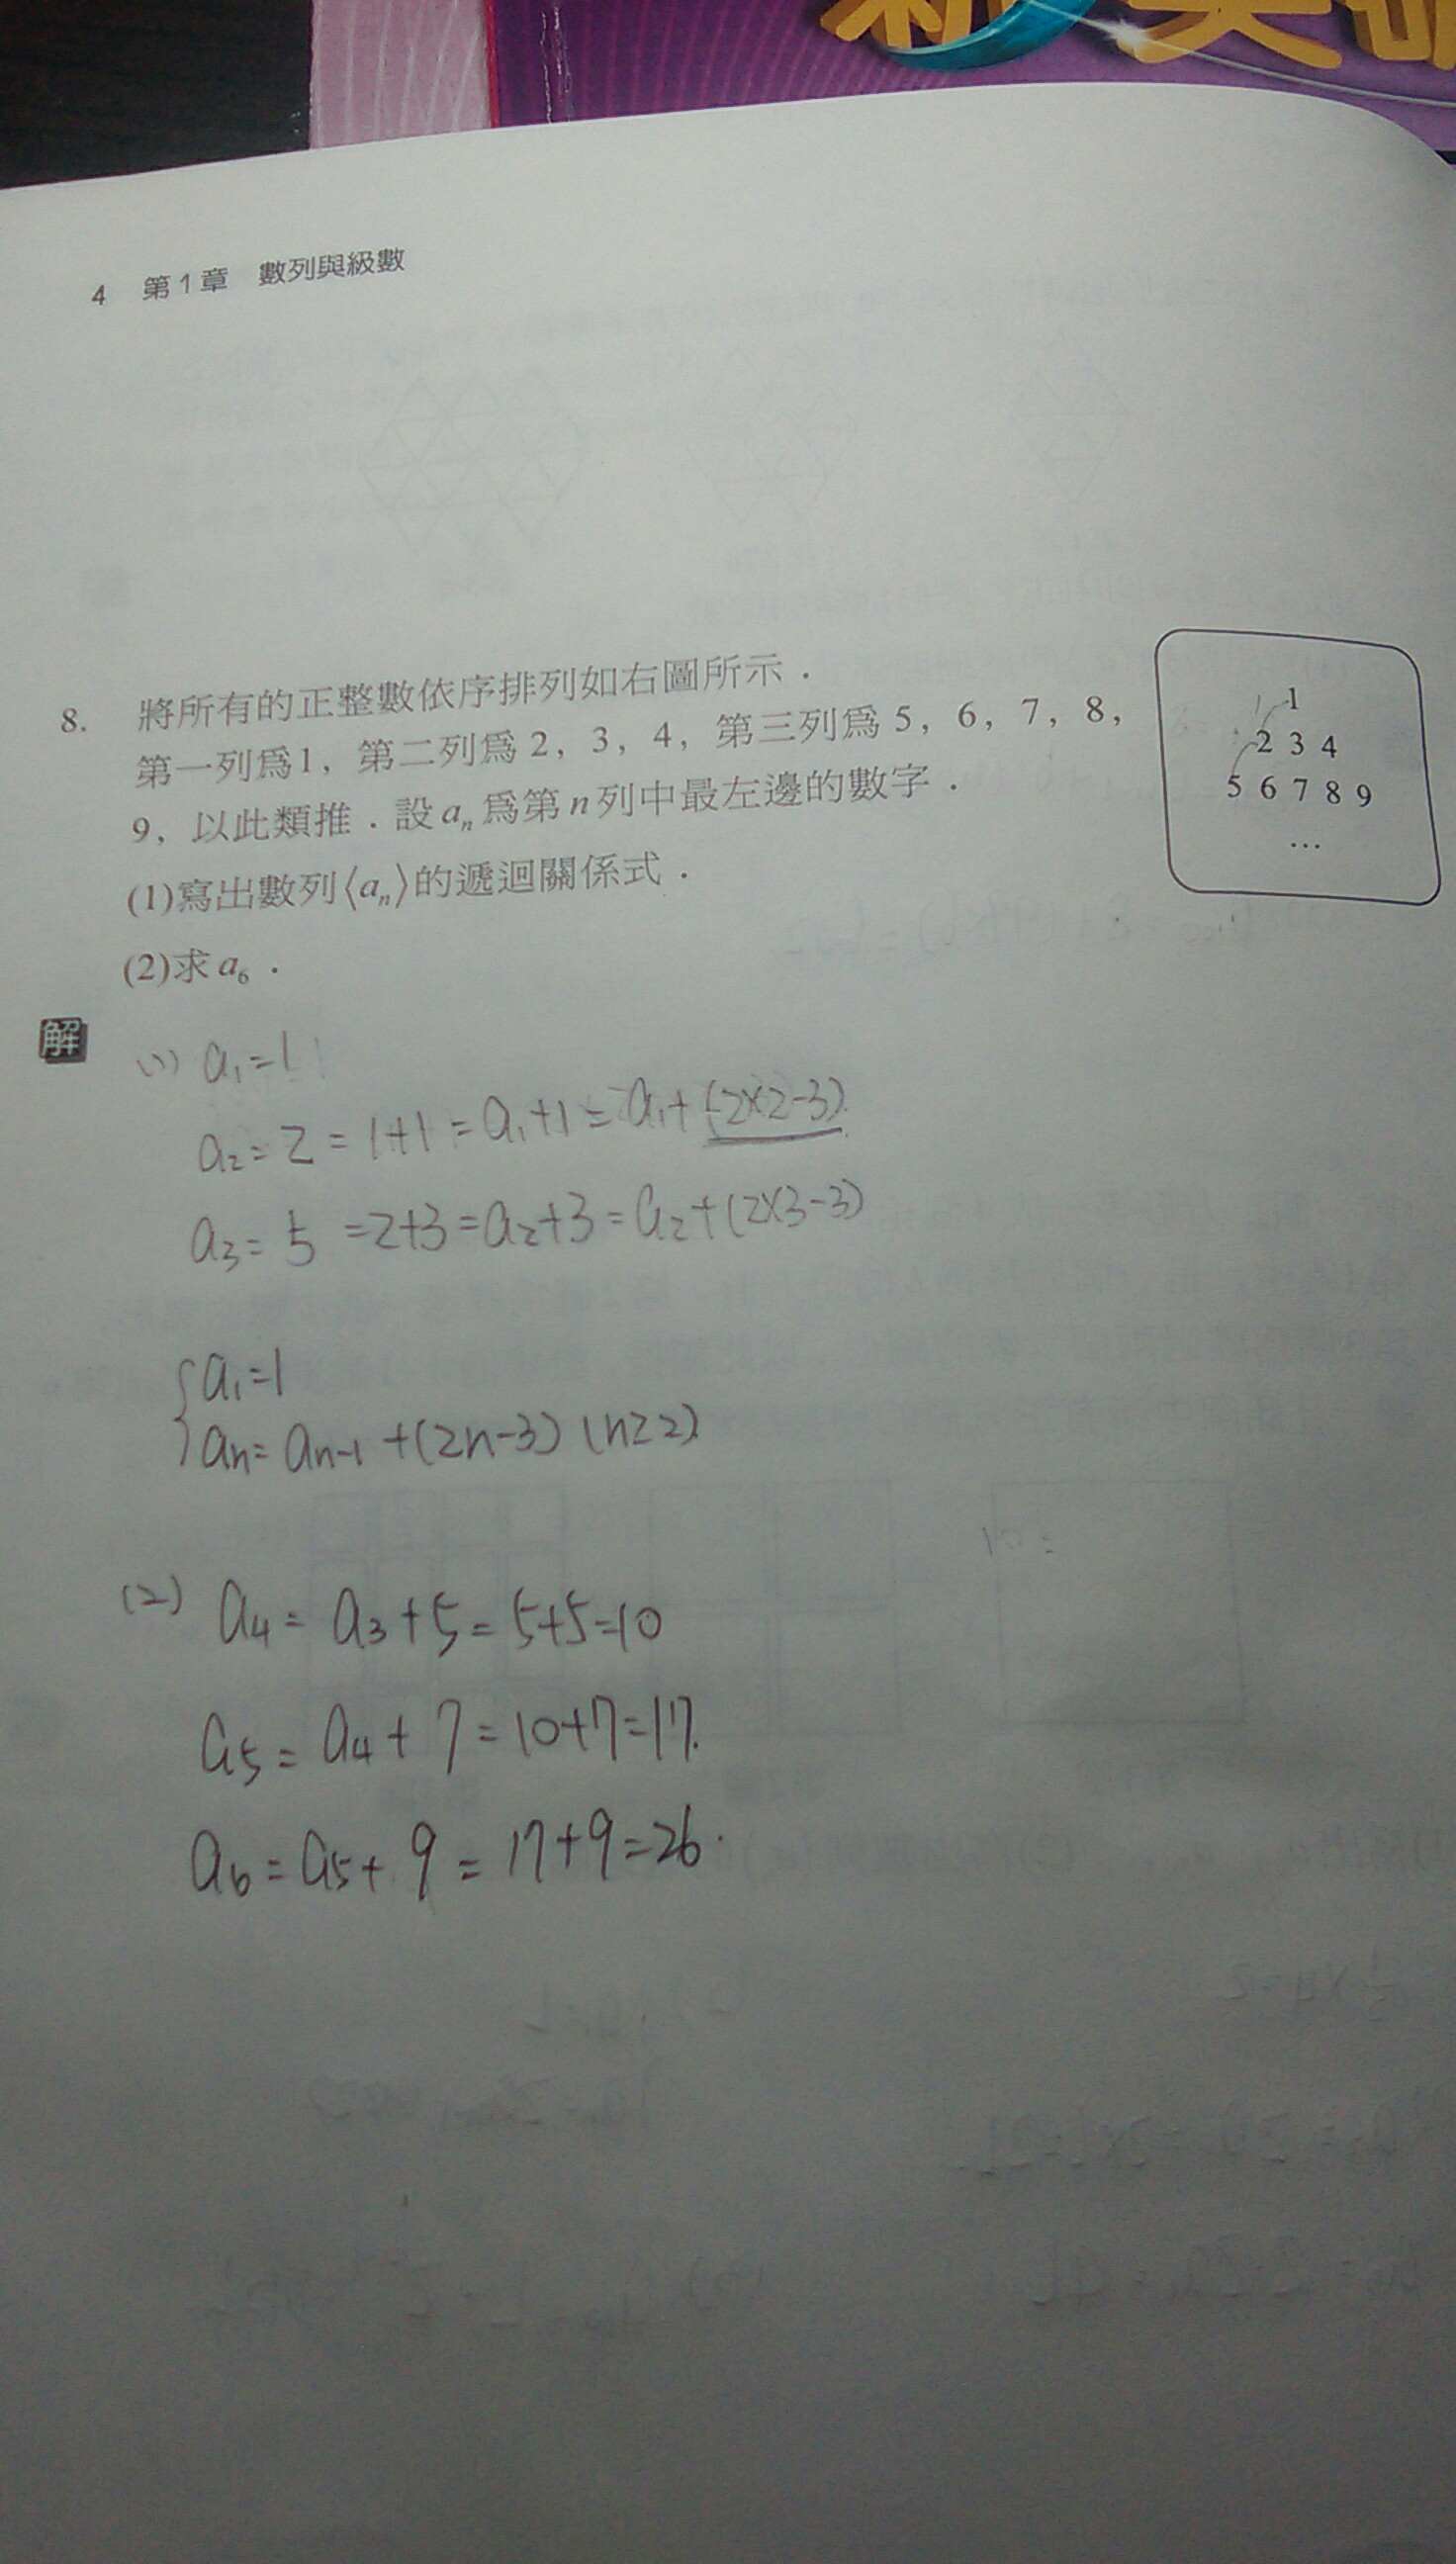 新
4 第1章 數列與級數
8. 將所有的正整數依序排列如右圖所示．
第一列爲1，第二列爲 2，3，4，第三列爲 5，6，7，8，
9，以此類推．設 aₙ 爲第 n 列中最左邊的數字．
(1)寫出數列⟨aₙ⟩的遞迴關係式．
(2)求 a₆．
1
2 3 4
5 6 7 8 9
…
解
(1) a₁=1
a₂=2=1+1=a₁+1=a₁+(2×2-3)
a₃=5=2+3=a₂+3=a₂+(2×3-3)
a₁=1
aₙ=aₙ₋₁+(2n-3) (n≥2)
(2) a₄=a₃+5=5+5=10
a₅=a₄+7=10+7=17.
a₆=a₅+9=17+9=26.